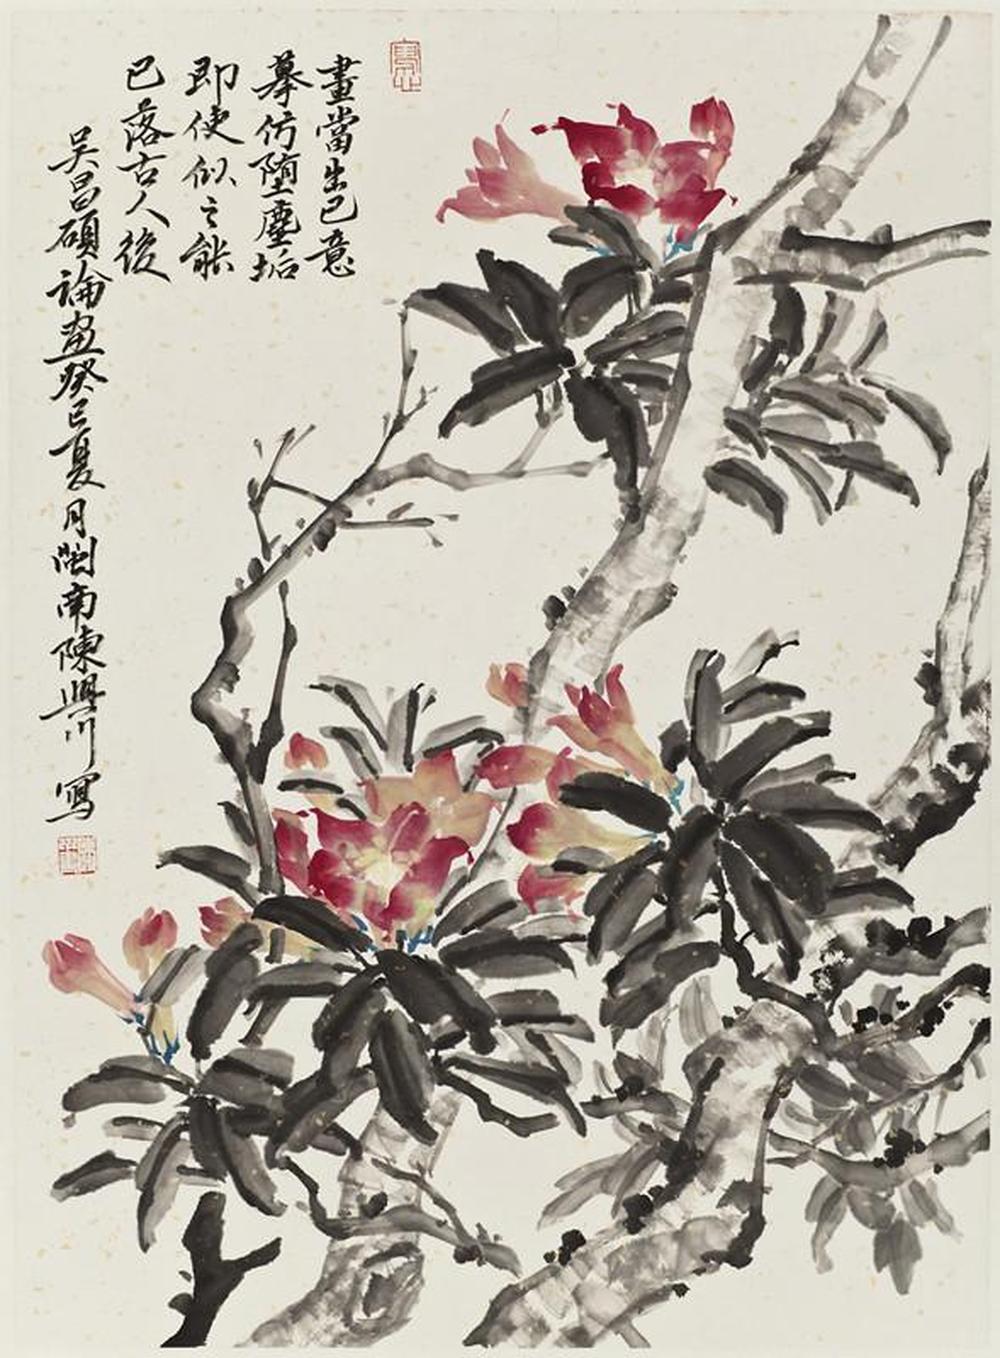 畫當出己意
摹仿墮塵垢
即使似之能
已落古人後
吴昌碩論畫癸巳夏月閩南陳興川寫